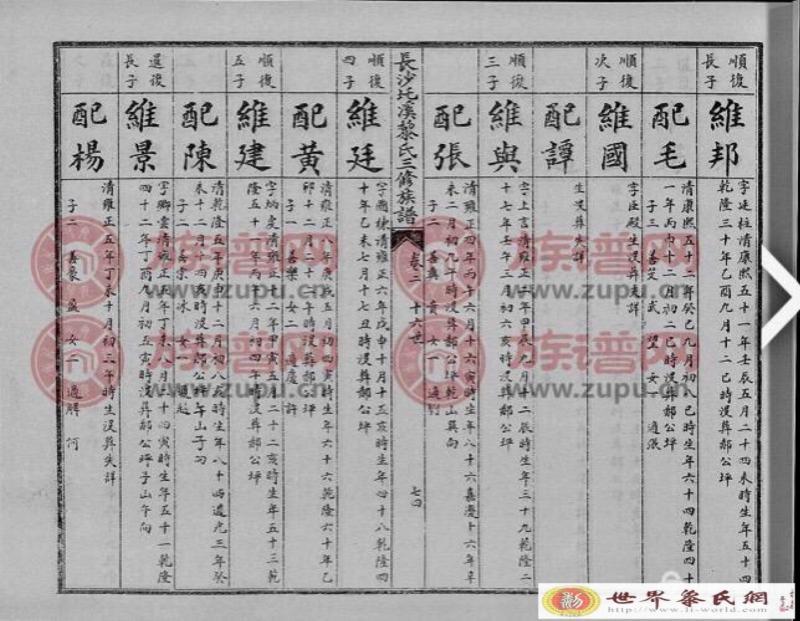 順復
長子
維邦
字廷柱清康熙五十一年壬辰五月二十四未時生年五十四
乾隆三十年乙酉九月十二巳時沒葬郝公坪
配毛
清康熙五十二年癸巳九月初八巳時生年六十四乾隆四十
一年丙申十二月初二巳時沒葬郝公坪
子三 善
武 望 女一 適張
順復
次子
維國
字臣殿生沒葬失詳
配譚
生沒葬失詳
順復
三子
維與
字上言清雍正二年甲辰九月十二辰時生年三十九乾隆二
十七年壬午三月初六亥時沒葬郝公坪
配張
清雍正四年丙午六月十六亥時生年八十六嘉慶十六年辛
未二月初九午時沒葬郝公坪乾山巽向
子二 善與 貴 女一 適
長沙圫溪黎氏三修族譜
卷二 十六世
七四
順復
四子
維廷
字爾棟清雍正六年戊申十月十五亥時生年四十八乾隆四
十年乙未七月十七丑時沒葬郝公坪
配黃
清雍正八年庚戌五月初四寅時生年六十六乾隆六十年乙
卯十二月二十
時沒葬郝公坪
子一 善樂 女二 適
許
順復
五子
維建
字炳
清雍正十二年甲寅五月二十二亥時生年五十三乾
隆五十一年丙午六月初四午時沒葬郝公坪
配陳
清乾隆五年庚申十二月初八戌時生年八十四道光三年癸
未十二月十四亥時沒葬郝公坪午山子向
子二 善宗
女一 適
還復
長子
維景
字卿雲清雍正五年丁未八月二十四寅時生年五十一乾隆
四十二年丁酉九月初五寅時沒葬郝公坪子山午向
配楊
清雍正五年丁未十月初三辰時生沒葬失詳
子二 善象 盈 女二 適解 何
族譜网
www.zupu.cn
世界黎氏網
http://www.li-world.com